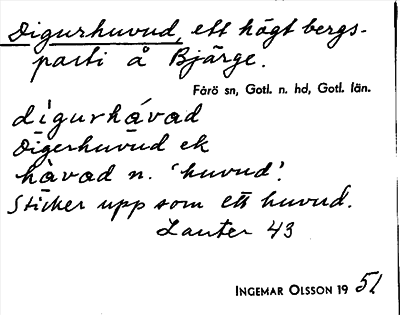 Digurhuvud, ett högt bergs-
parti å Bjärge.
Fårö sn, Gotl. n. hd, Gotl. län.
digurhávad
Digerhuvud ek
hàvad n. 'huvud'.
Sticker upp som ett huvud.
Lauter 43
INGEMAR OLSSON 19 51